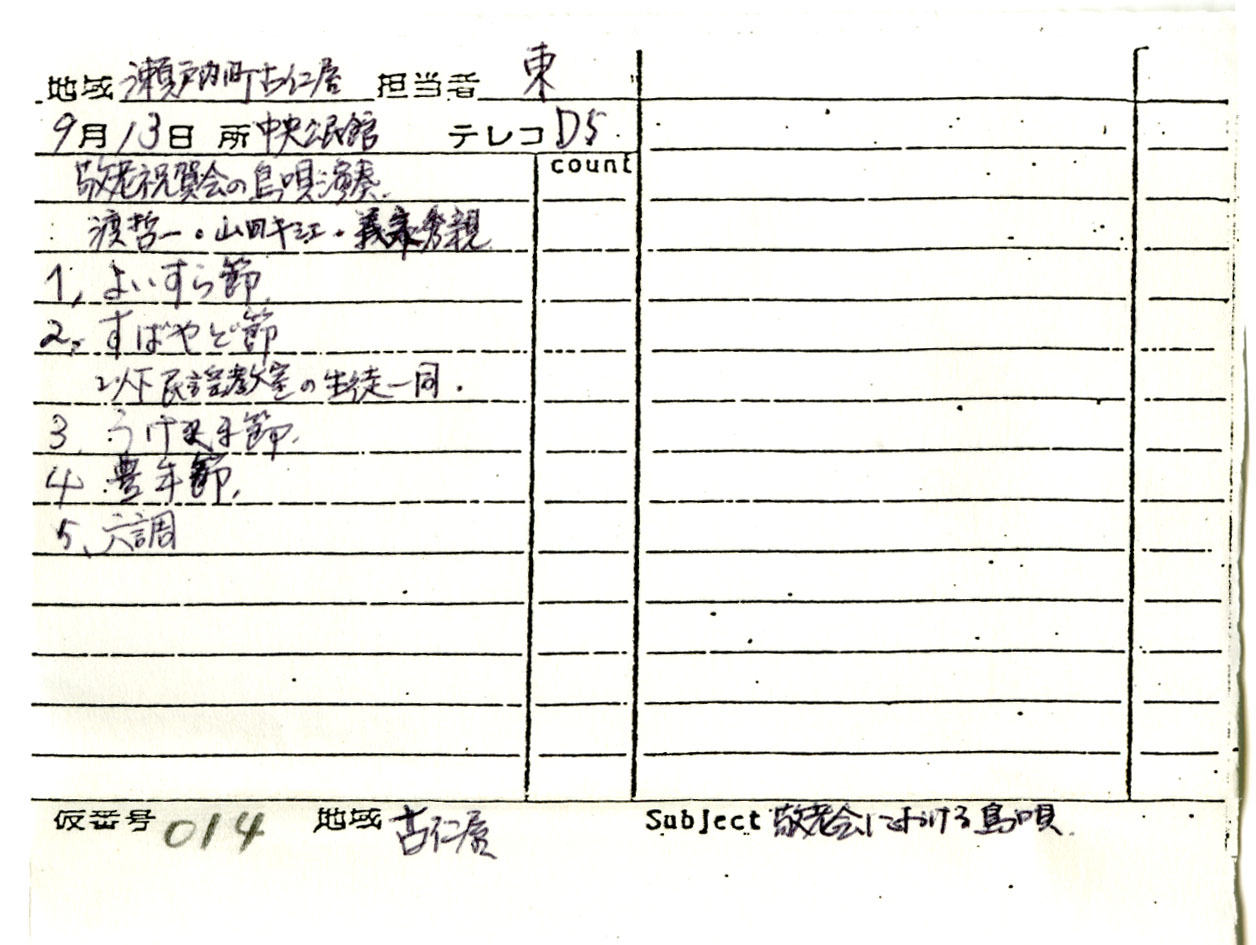 地域 瀬戸内町古仁屋 担当者 東
9月13日 所 中央公民館 テレコ D5
count
敬老祝賀会の島唄演奏.
渡哲一・山田キミ江・義永秀親
1, よいすら節
2, すばやど節
以下民謡教室の生徒一同.
3. うけ 節.
4 豊年節.
5、六調
仮番号 014 地域 古仁屋 Subject 敬老会における島唄.